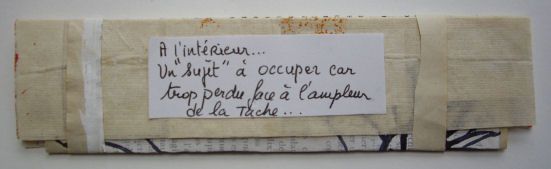 A l'intérieur...
Un "sujet" à occuper car
trop perdu face à l'ampleur
de la Tâche...